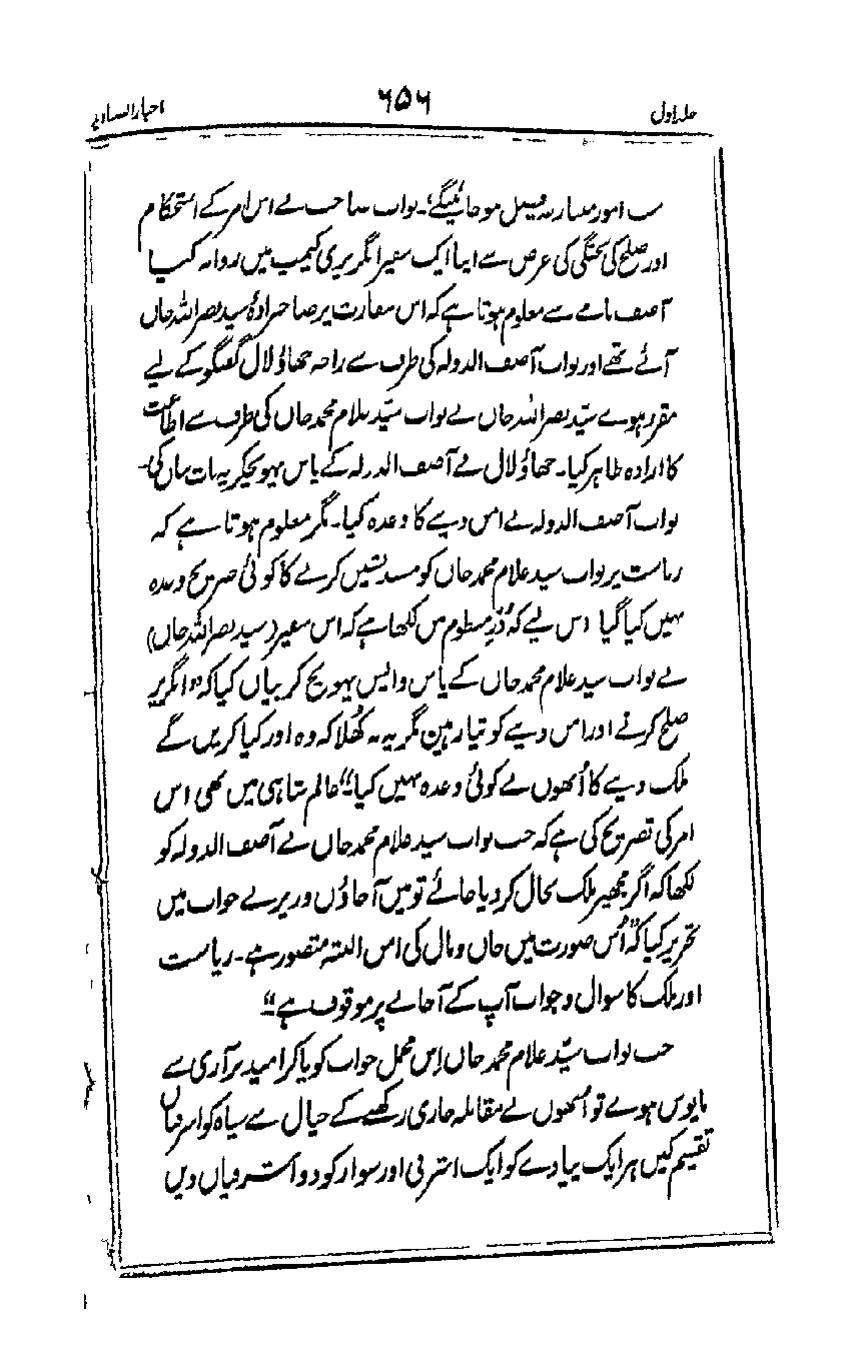 جلد اول ۶۵۶ اخبار الصنادید
سب امور متنازعہ فیصل ہو جائینگے؛ نواب صاحب نے اس امر کے استحکام
اور صلح کی پختگی کی غرض سے اپنا ایک سفیر انگریزی کیمپ میں روانہ کیا
آصف نامے سے معلوم ہوتا ہے کہ اس سفارت پر صاحبزادۂ سید نصر اللہ خاں
آئے تھے اور نواب آصف الدولہ کی طرف سے راجہ جھاؤ لال گفتگو کے لیے
مقرر ہوے سیّد نصر اللہ خاں نے نواب سیّد غلام محمد خاں کی طرف سے اطاعت
کا ارادہ ظاہر کیا۔ جھاؤ لال نے آصف الدولہ کے پاس پہونچکر یہ بات بیان کی۔
نواب آصف الدولہ نے امن دینے کا وعدہ کیا۔ مگر معلوم ہوتا ہے کہ
ریاست پر نواب سید غلام محمد خاں کو مسند نشین کرنے کا کوئی صریح وعدہ
نہیں کیا گیا اس لیے کہ دُرِّ منظوم میں لکھا ہے کہ اس سفیر (سید نصر اللہ خاں)
نے نواب سید غلام محمد خاں کے پاس واپس پہونچ کر بیان کیا کہ "انگریز
صلح کرنے اور امن دینے کو تیار ہین مگر یہ نہ کھُلا کہ وہ اور کیا کریں گے
ملک دینے کا اُنھوں نے کوئی وعدہ نہیں کیا" عالم شاہی میں بھی اس
امر کی تصریح کی ہے کہ جب نواب سید غلام محمد خاں نے آصف الدولہ کو
لکھا کہ اگر مجھپر ملک بحال کر دیا جائے تو میں آ جاؤں وزیر نے جواب میں
تحریر کیا کہ "اُس صورت میں جان و مال کی امن البتہ متصور ہے۔ ریاست
اور ملک کا سوال و جواب آپ کے آ جانے پر موقوف ہے"
جب نواب سیّد غلام محمد خاں اِس مجمل جواب کو پا کر امید برآری سے
مایوس ہوے تو اُنھوں نے مقابلہ جاری رکھنے کے خیال سے سپاہ کو اشرفیاں
تقسیم کیں ہر ایک پیادے کو ایک اشرفی اور سوار کو دو اشرفیاں دیں